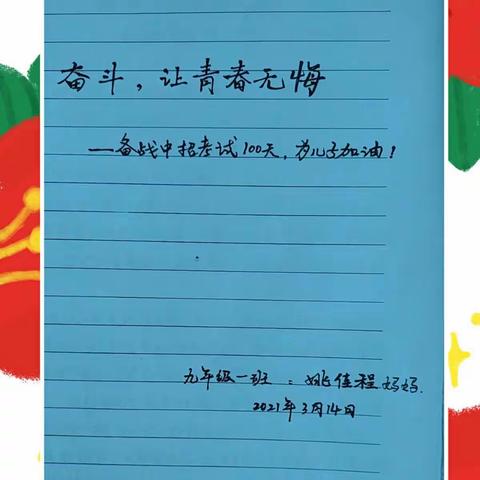 奋斗，让青春无悔
—备战中招考试100天，为儿子加油！
九年级一班：姚佳程妈妈.
2021年3月14日